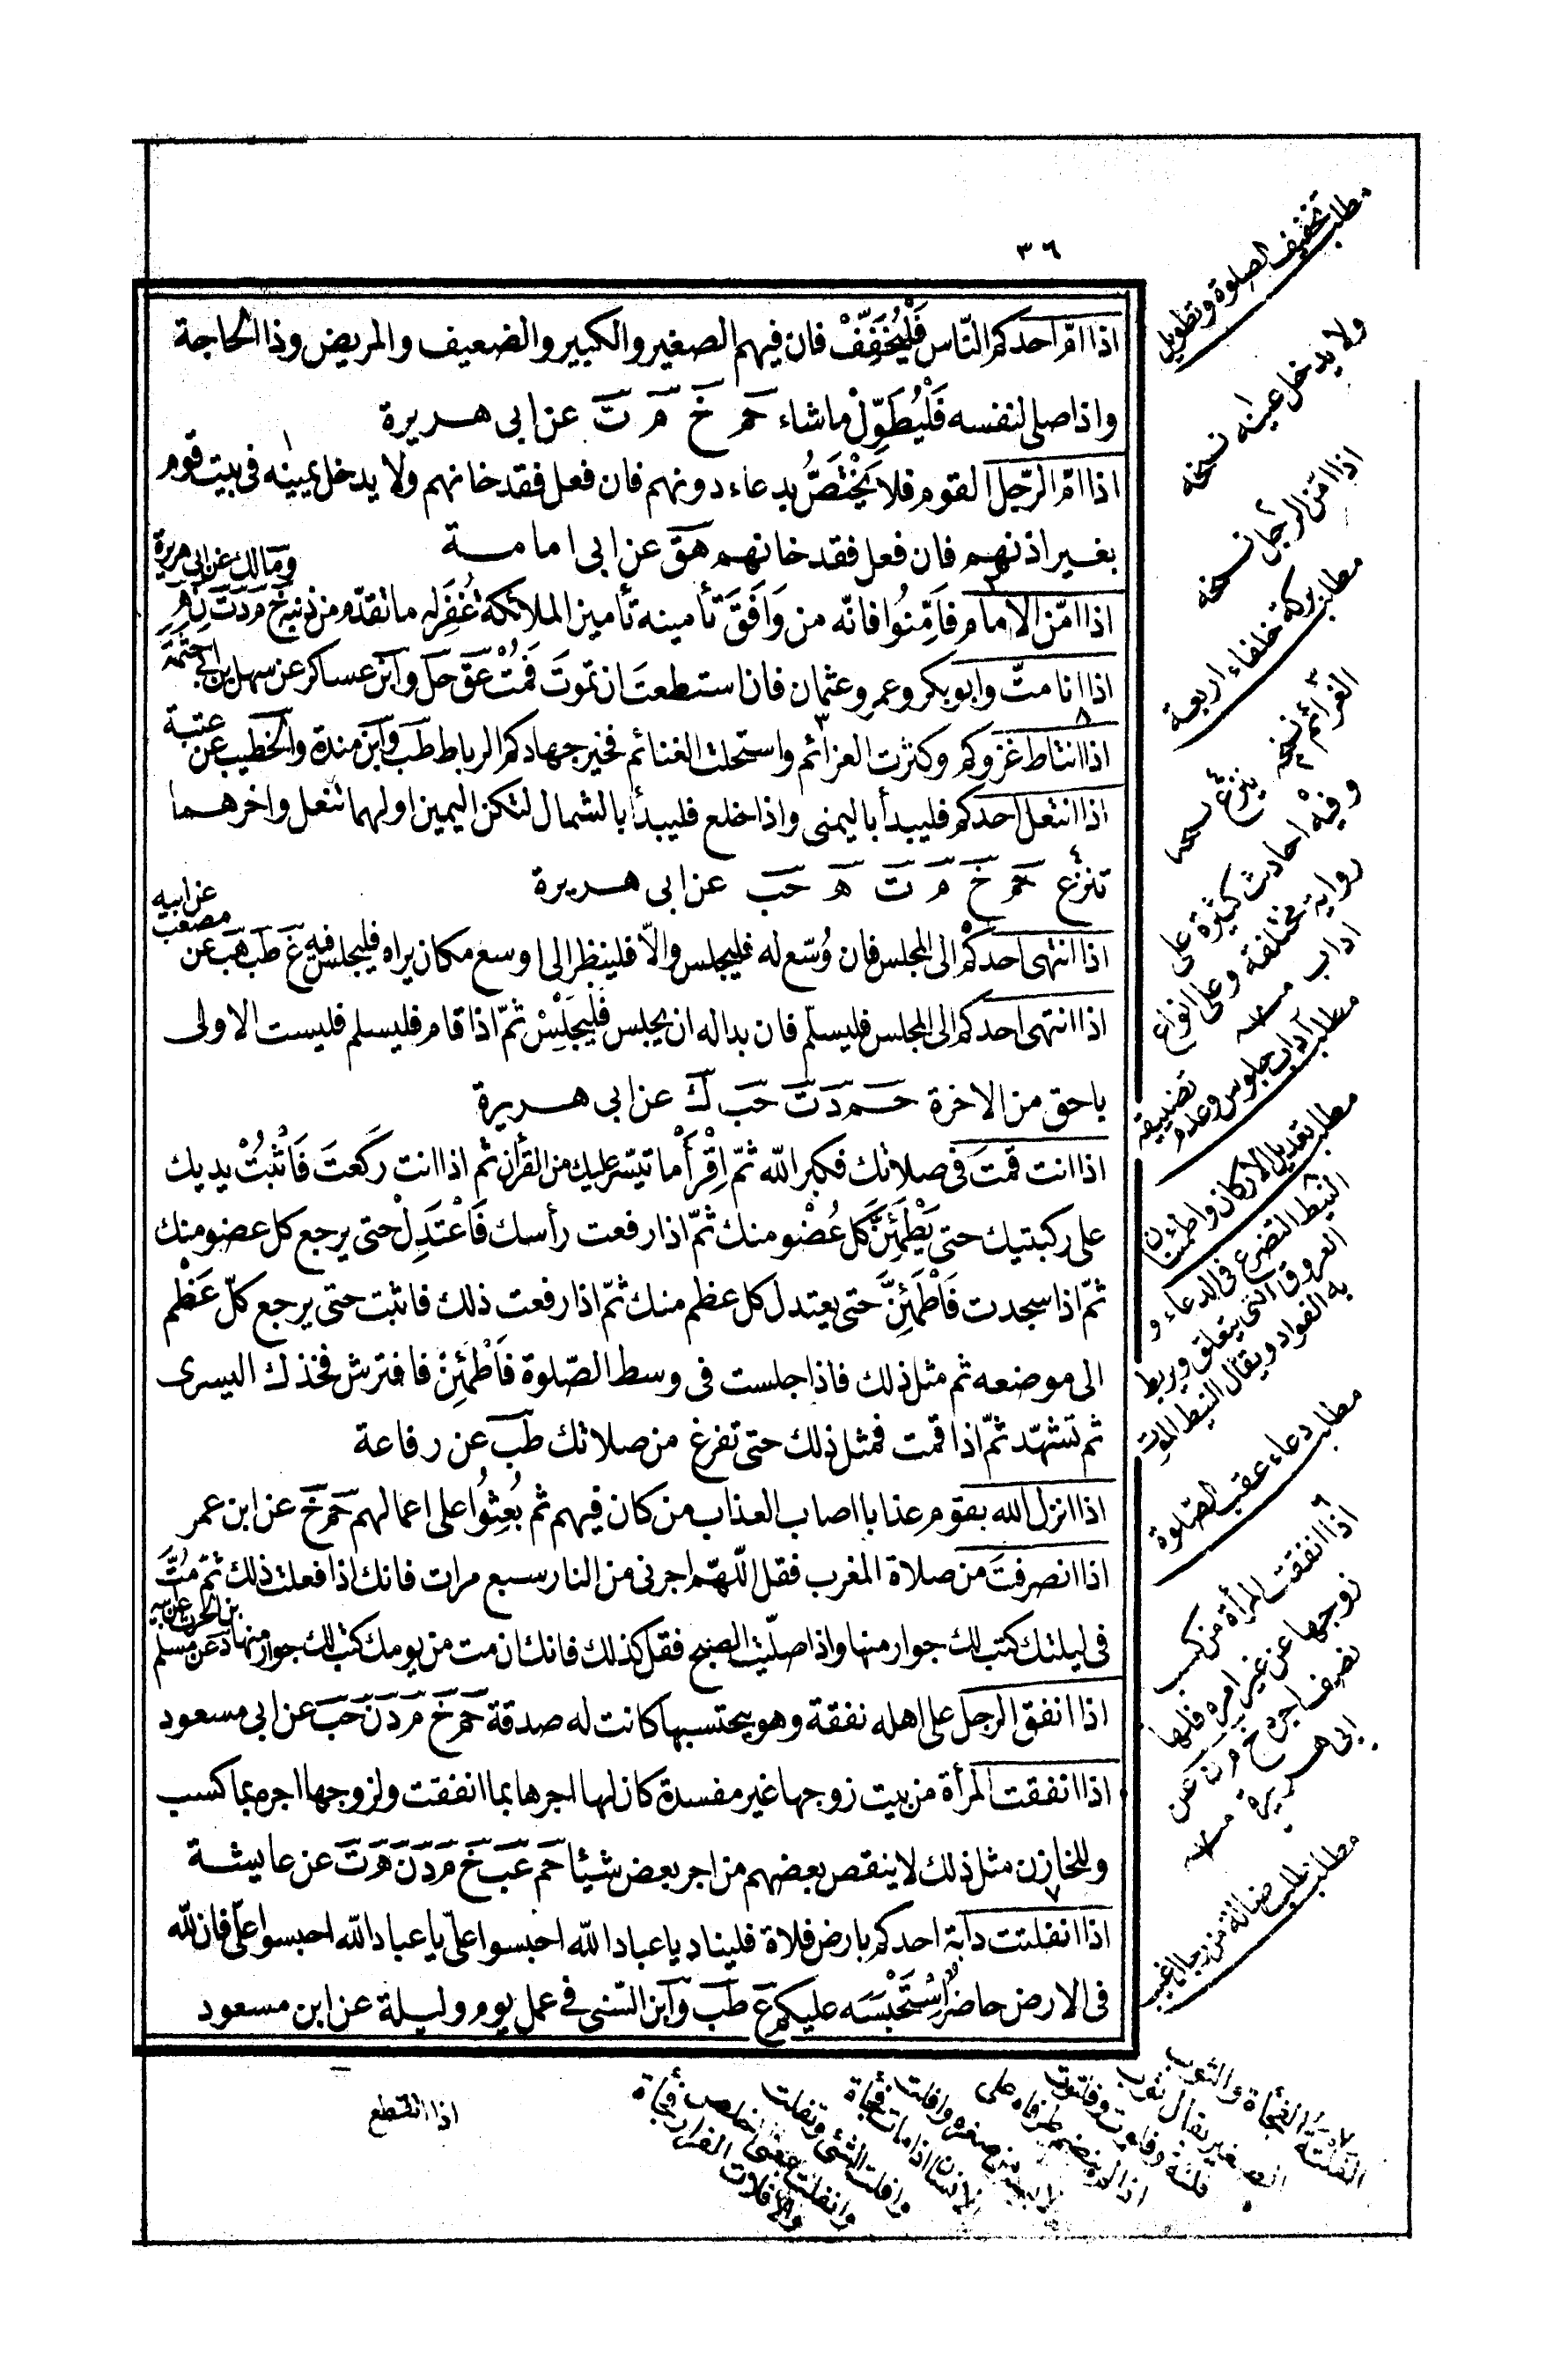 ٣٦
اذا امّ احدكم النّاس فَلْيُخَفِّفْ فان فيهم الصغير والكبير والضعيف والمريض وذا الحاجة
واذا صلى لنفسه فَلْيُطَوِّلْ ماشاء حَم خَ مَ تَ عن ابى هريرة
اذا امّ الرّجل القوم فلا يَخْتَصَّ بدعاء دونهم فان فعل فقد خانهم ولا يدخل عينيه فى بيت قوم
بغير اذنهم فان فعل فقد خانهم هَق عن ابى امامة
ومَالك عن ابى هريرة
اذا امّن الامام فَاَمِّنُوا فانّه من وَافَقَ تأمينه تأمين الملائكة غُفِرَ له ما تقدّم من ذنبه خَ مَ دَ تَ نَ هَ
اذا انا متّ وابو بكر وعمر وعثمان فان استطعت ان تموتَ فَمُتْ عَق حَل وابَن عساكر عن سهل بن ابى حثمة
اذا انتاط غزوكم وكثرت العزائم واستحلت الغنائم فخير جهادكم الرباط طَب وابَن مندة والخَطيب عن عتبة
اذا انتعل احدكم فليبدأ باليمنى واذا خلع فليبدأ بالشمال لتكن اليمين اولهما تنعل واخرهما
تنزع حَم خَ مَ تَ هَ حَب عن ابى هريرة
اذا انتهى احدكم الى المجلس فان وُسّع له فليجلس والّا فلينظر الى اوسع مكان يراه فليجلس فيه غَ طَب هَب عن مصعب عن ابيه
اذا انتهى احدكم الى المجلس فليسلّم فان بدا له ان يجلس فَلْيَجْلِسْ ثمّ اذا قام فليسلم فليست الاولى
باحق من الاخرة حَم دَ تَ حَب كَ عن ابى هريرة
اذا انت قمتَ فى صلاتك فكبر الله ثمّ اِقْرَأْ ما تيسّر عليك من القرأن ثم اذا انت ركَعتَ فَاَثْبِتْ يديك
على ركبتيك حتى يَطْمَئِنَّ كل عُضْو منك ثمّ اذا رفعت رأسك فَاعْتَدِلْ حتى يرجع كل عضو منك
ثمّ اذا سجدت فَاَطْمَئِنَّ حتى يعتدل كل عظم منك ثمّ اذا رفعت ذلك فاثبت حتى يرجع كلّ عَظْم
الى موضعه ثم مثل ذلك فاذا جلست فى وسط الصّلوة فَاَطْمَئِنَّ فافترش فخذك اليسرى
ثم تشهّد ثمّ اذا قمت فمثل ذلك حتى تفرغ من صلاتك طَب عن رفاعة
اذا انزل الله بقوم عذابا اصاب العذاب من كان فيهم ثم بُعِثُوا على اعمالهم حَم خَ عن ابن عمر
اذا انصرفتَ من صلاة المغرب فقل اللّهمّ اجرنى من النار سبع مرات فانك اذا فعلت ذلك ثمّ مُتَّ
فى ليلتك كتب لك جوار منها واذا صلّيت الصبح فقل كذلك فانك ان مت من يومك كتب لك جوار منها دَ عن مسلم بن الحرث عن ابيه
اذا انفق الرجل على اهله نفقة وهو يحتسبها كانت له صدقة حَم خَ مَ دَ نَ حَب عن ابى مسعود
اذا انفقت المرأة من بيت زوجها غير مفسدة كان لها اجرها بما انفقت ولزوجها اجره بما كسب
وللخازن مثل ذلك لا ينقص بعضهم من اجر بعض شيئا حَم عَب خَ مَ دَ نَ هَ تَ عن عايشة
اذا انفلتت دابّة احدكم بارض فلاة فليناد يا عباد الله احبسوا علىّ يا عباد الله احبسوا علىّ فان لله
فى الارض حاضرًا سَتَحْبِسَه عليكم عَ طَب وابَن السّنى فى عمل يوم وليلة عن ابن مسعود
اذا انقطع
مطلب تخفيف الصلوة وتطويل
ولا يدخل عينه نسخه
اذا امّن الرجل نسخه
مطلب بركة خلفاء اربعة
الغرائم نسخه
ينزع نسخه
وفيه احاديث كثيرة على
رواية مختلفة وعلى انواع
اداب
مطلب آداب جلوس وعدم
تضييقه
مطلب تعديل الاركان واطمئنان
النيط التضرع فى الدعاء و
العروق التى يتعلق ويربط
به الفواد ويقال النيط الموت
مطلب دعاء عقب الصلوة
اذا انفقت المرأة من كسب
زوجها عن غير امره فلها
نصف اجره خ م د عن
ابى هريرة
مطلب طلب ضالة من رجال الغيب